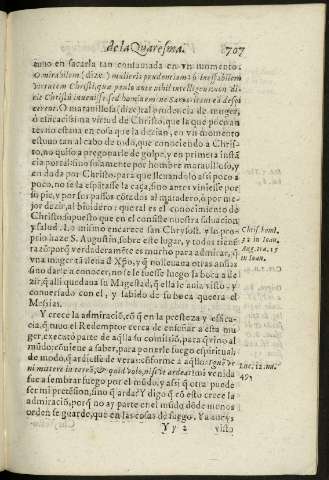 de la Quaresma. 707
tuuo en sacarla tan consumada en vn momento.
O mirabilem (dize) mulieris prudentiam! ô ineffabilem
virtutem Christi, quæ paulo ante nihil intelligens
O marauillosa (dize) tal prudencia de muger,
ô eficacissima virtud de Christo, que la que poco an
tes no estaua en cosa que la dezian, en vn momento
estuuo tan al cabo de todo, que conociendo a Chris-
to, no quiso a pregonarle de golpe, y en primera instã
cia por tal, sino solamente por hombre marauilloso, y
en dada por Christo, para que lleuandolo assi poco a
poco, no se le espãtasse la caça, sino antes viniesse por
su pie, y por sus passos cõtados al matadero, ô por me-
jor dezir, al biuidero: que tal es el conocimiento de
Christo, supuesto que en el consiste nuestra saluacion
y salud. Lo mismo encarece san Chrysost. y lo pro-
pio haze S. Augustin, sobre este lugar, y todos tienẽ
razõ: porq̃ verdaderamẽte es mucho para admirar, q̃
vna muger tã llena d̃ Xp̃o, y q̃ rollentaua otras ansias
sino darle a conocer, no se le fuesse luego la boca a de
zir, q̃ alli quedaua su Magestad, q̃ ella le auia visto, y
conuersado con el, y sabido de su boca que era el
Messias.
Chris. homi.
32 in Ioan.
Aug. tra. 15
in Ioan.
Y crece la admiraciõ, cõ q̃ en la presteza y effica-
cia, q̃ tuuo el Redemptor cerca de enseñar a esta mu
ger, executò parte de aq̃lla su comissiõ, para q̃ vino al
mũdo: cõuiene a saber, para ponerle fuego espiritual,
de modo, q̃ ardiesse de veras: cõforme a aq̃llo: Ignẽ ve
ni mittere in terrã, & quid volo, nisi vt ardeat: mi venida
fue a sembrar luego por el mũdo, y assi q̃ otra puede
ser mi pretensiõ, sino q̃ arda? Y digo q̃ cõ esto crece la
admiraciõ, porq̃ no ay parte en el mũdo dõde menos
orden se guarde, que en las cosas de fuego. Ya aueys
Luc. 12. nu.
49.
Yy 2 visto